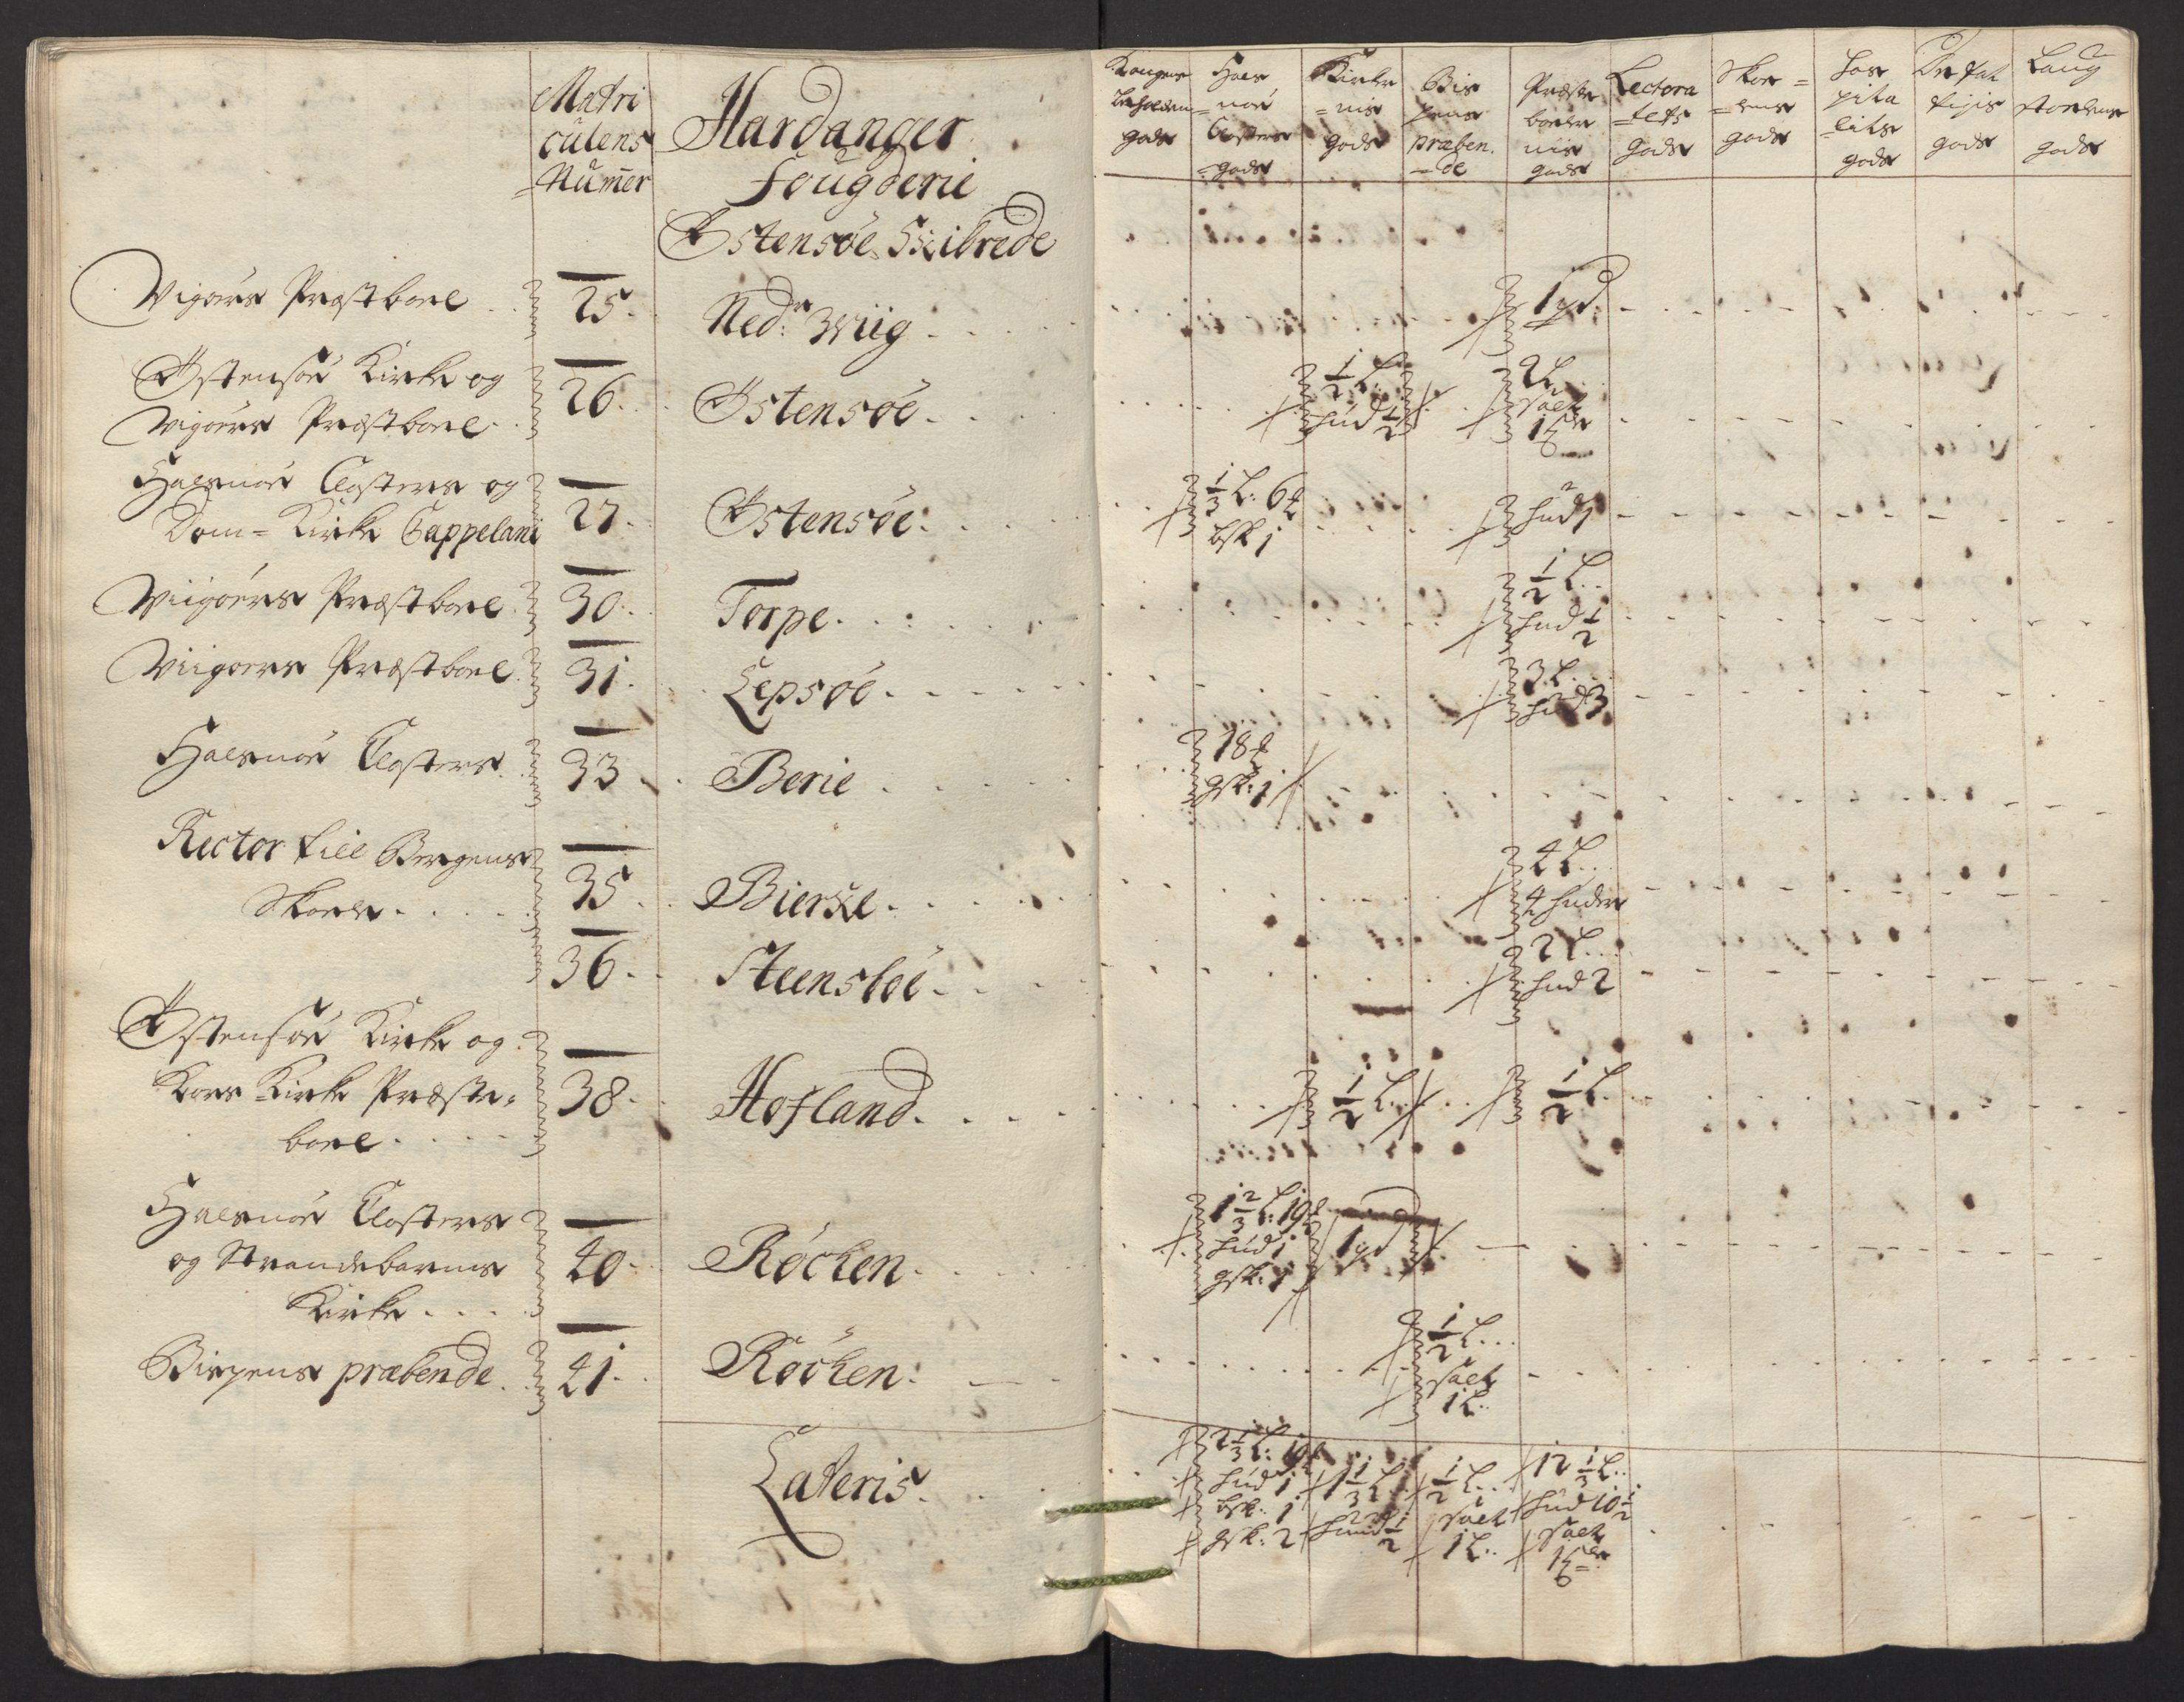 Matri
culens
Numer
Hardanger
Fougderie
Østensøe Skibrede
Kongens
beholden
gods
Hals
nøe
Closters
gods
Kirke
nis
gods
Bis
pens
præben
de
Præste
boele
nis
gods
Lectora
tets
gods
Skoe
lens
gods
Hos
pita
lits
gods
gods
Laug
stoelens
gods
Vigørs Præstboel 25. Nedr Wiig 1 pd.
Østensøe Kirke og
Vigørs Præstboel 26. Østensøe
½ L:
hud ½
2 L
salt
1
Halsnøe Closters og
Dom= Kirke Cappelani 27. Østensøe
⅓ L: 6
bsk 1
hud 1
Viigørs Præstboel 30. Torpe
½ L
hud ½
Viigørs Præstboel 31. Lepsøe
3 L
hud 3
Halsnøe Closters 33 Berie
18
gsk: 1
Rector till Bergens
Skoele 35. Bierke
4 L
4 huder
36. Steenstøe
2 L
hud 2
Østensøe Kirke og
Kors Kirke Præste=
boel 38. Hofland. ½ L ½ L
Halsnøe Closters
og Strandebarms
Kirke 40. Røchen
1⅔ L: 19
hud 1
gsk: 1
1 pd
Bispens præbende 41. Røchen
½ L
salt
1 L
Lateris.
2⅓ L: 19
hud 1
bsk: 1
gsk: 2
hud ½
½ L
salt
1 L
12⅓ L
hud 10½
salt
1